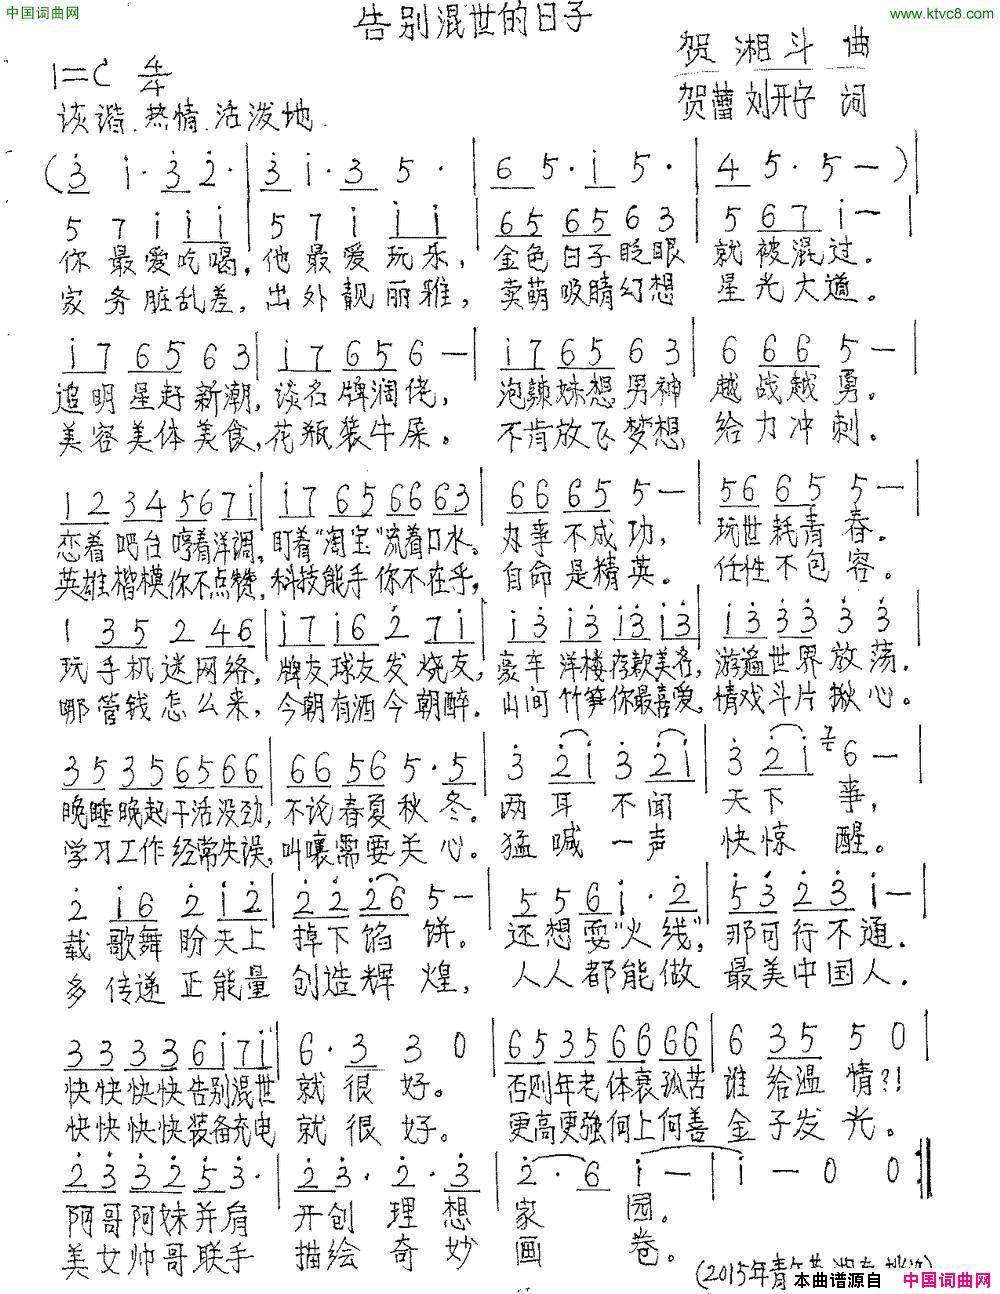 中国词曲网
告别混世的日子
www.ktvc8.com
1=C 4/4
贺湘斗 曲
贺蕾 刘开宇 词
诙谐.热情.活泼地.
(3 i·3 2·|3 i·3 5·|6 5·i 5·|4 5·5—)|
5 7 i i i|5 7 i i i|65 65 6 3|5 67 i—|
你最爱吃喝,他最爱玩乐,金色日子眨眼就被混过。
家务脏乱差,出外靓丽雅,卖萌吸睛幻想星光大道。
i7 65 6 3|i7 65 6—|i7 65 6 3|6 66 5—|
追明星赶新潮,谈名牌阔佬,泡辣妹想男神越战越勇。
美容美体美食,花瓶装牛屎。不肯放飞梦想,给力冲刺。
12 34 56 7i|i7 65 66 63|66 65 5—|56 65 5—|
恋着吧台哼着洋调,盯着“淘宝”流着口水。办事不成功,玩世耗青春。
英雄楷模你不点赞,科技能手你不在乎,自命是精英.任性不包容。
1 35 2 46|i7 i6 2 7i|i3 i3 i3 i3|i3 33 3 3|
玩手机迷网络,牌友球友发烧友,豪车洋楼存款美名,游遍世界放荡.
哪管钱怎么来,今朝有酒今朝醉.山间竹笋你最喜爱,情戏斗片揪心。
35 35 65 66|66 56 5·5|3 2i 3 2i|3 2i 6—|
晚睡晚起干活没劲,不论春夏秋冬。两耳不闻天下事,
学习工作经常失误,叫嚷需要关心。猛喊一声快惊醒。
2 i6 2 i2|22 26 5—|55 6 i·2|53 23 i—|
载歌舞盼天上掉下馅饼。还想耍“火线”,那可行不通.
多传递正能量创造辉煌,人人都能做最美中国人.
33 33 6i 7i|6·3 3 0|65 35 66 66|6 35 5 0|
快快快快告别混世就很好。否则年老体衰孤苦谁给温情?!
快快快快装备充电就很好。更高更强何上何善金子发光。
23 32 5 3·|2 3·2·3|2·6 i—|i—0 0:|
阿哥阿妹并肩开创理想家园。
美女帅哥联手描绘奇妙画卷。
(2015年青年
本曲谱源自 中国词曲网